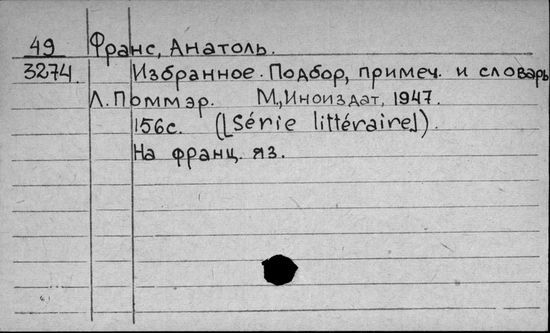 49 Франс, Анатоль.
3274. Избранное. Подбор, примеч. и словарь
Л. Поммэр. М., Иноиздат, 1947.
156с. ([Série littéraire]).
На франц. яз.